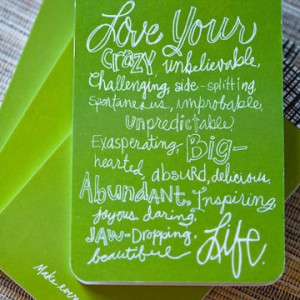 Love Your
crazy, unbelievable,
Challenging, side-splitting,
Spontaneous, improbable,
unpredictable,
Exasperating, Big-
hearted, absurd, delicious,
Abundant, Inspiring,
joyous, daring,
JAW-Dropping,
beautiful
Life.
Make